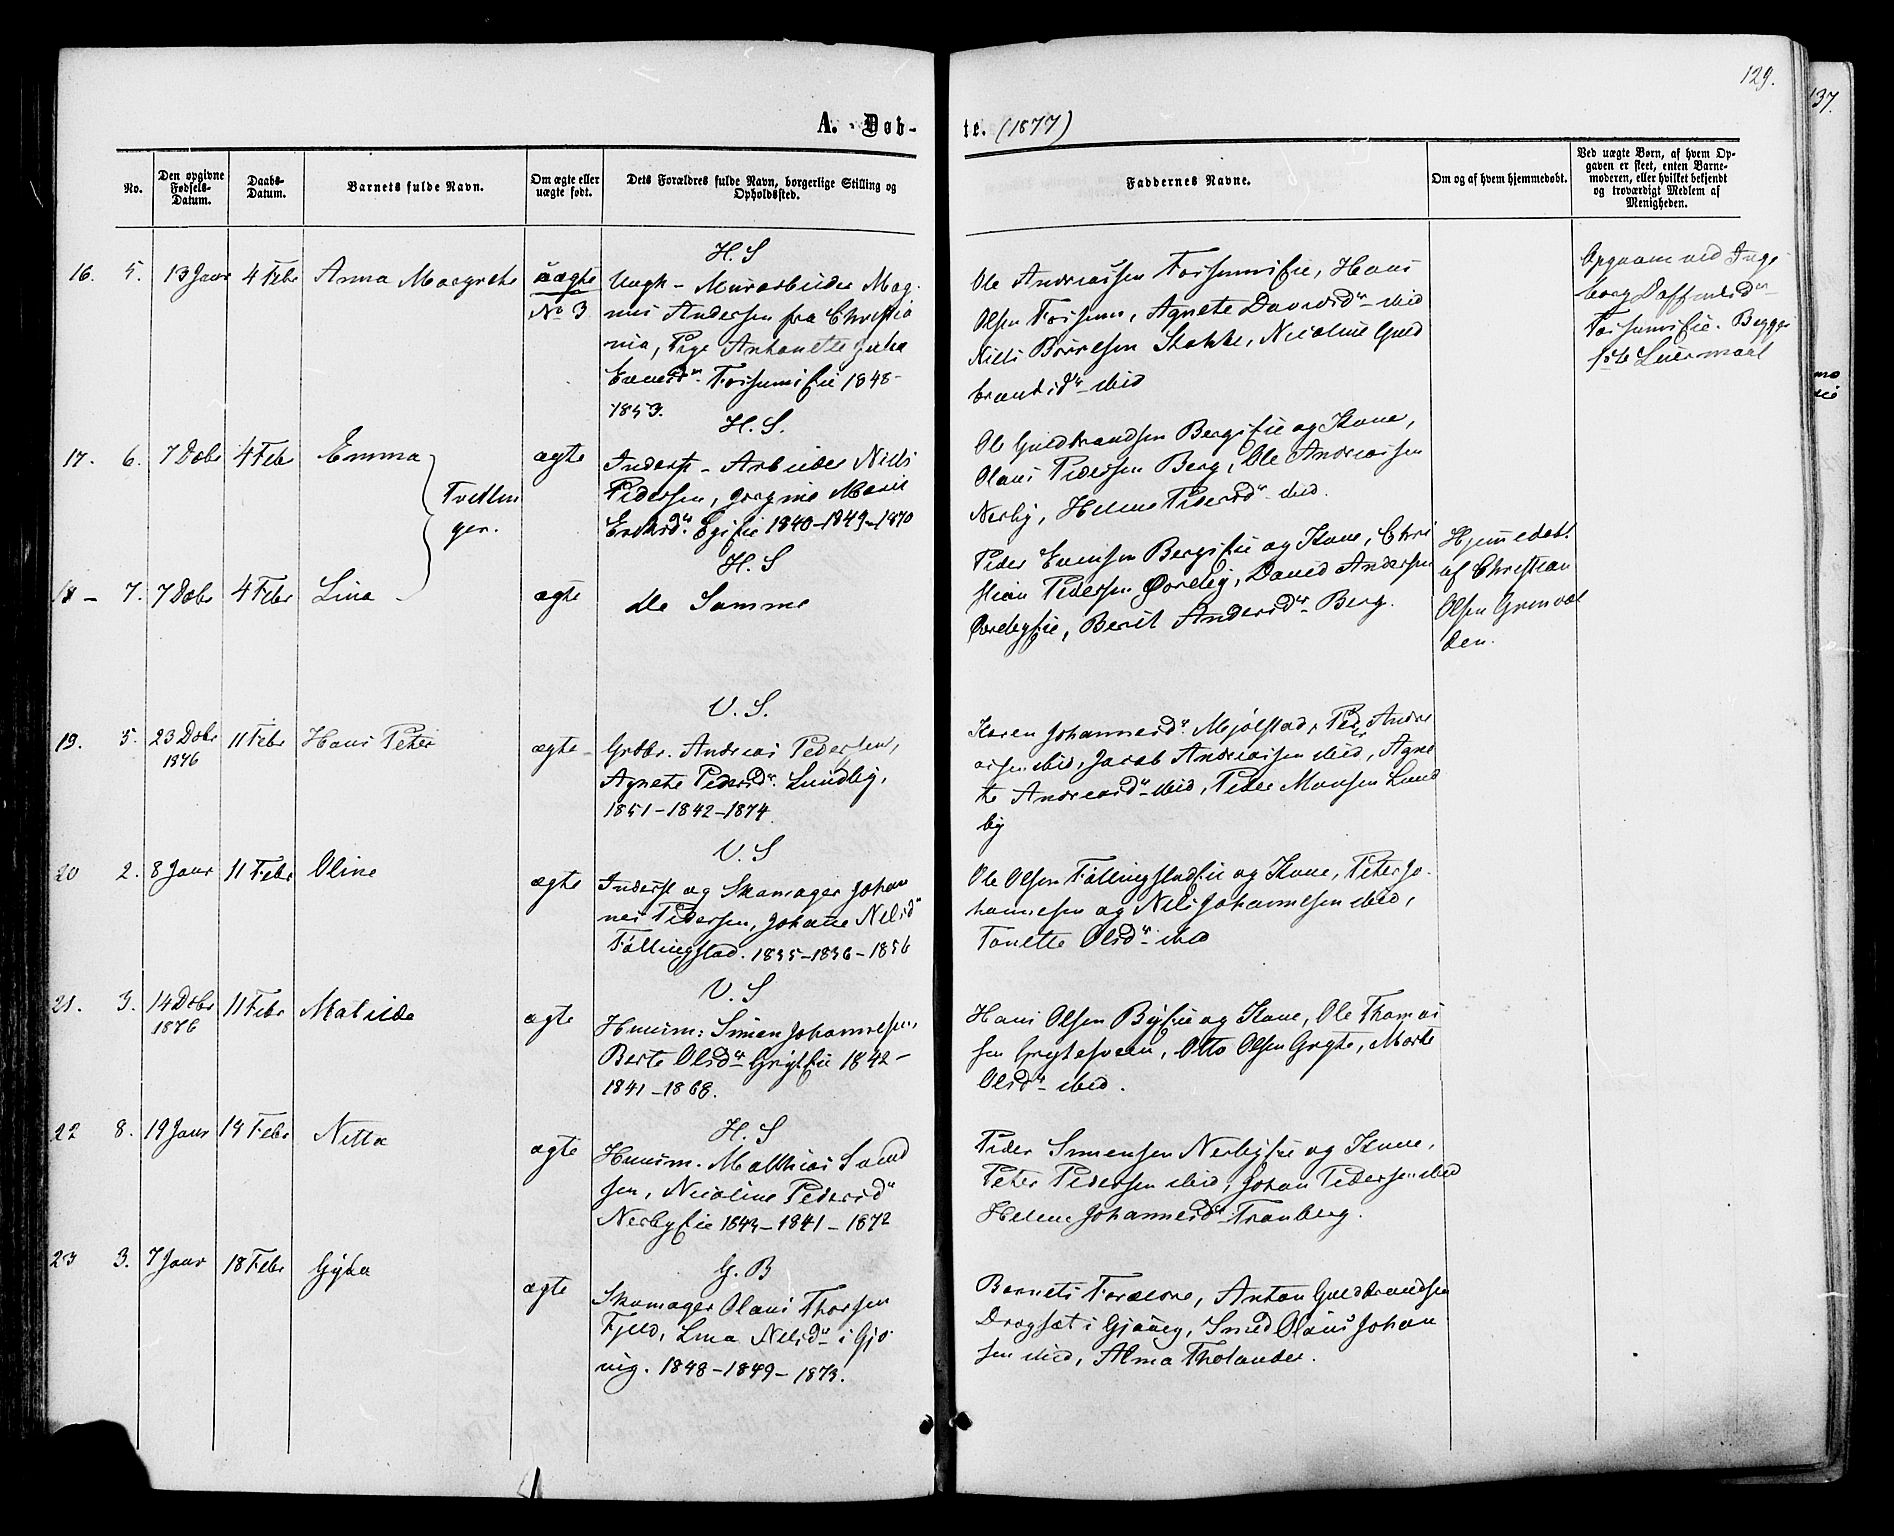 129.
137.
A. Døb-
te. (1877)
No.
Den opgivne Fødsels-Datum.
Daabs-Datum.
Barnets fulde Navn.
Om ægte eller uægte født.
Dets Forældres fulde Navn, borgerlige Stilling og Opholdssted.
Faddernes Navne.
Om og af hvem hjemmedøbt.
Ved uægte Børn, af hvem Opgaven er skeet, enten Barnemoderen, eller hvilket bekjendt og troværdigt Medlem af Menigheden.
H. S
16. 5. 13 Janr 4 Febr Anna Margrethe uægte
No 3
Ungk - Murarbeider Mag
nus Andersen fra Christia
nia, Pige Antonette
Evensdr. Fossumseie 1848-
1853.
Ole Andreassen Fossumseie, Hans
Olsen Fossum, Agnete Davidsdr ibid
Niels Stokke, Nicoline Guld
brandsdr ibid
Opgaven ved Inge
borg
Fossumseie. Begges
1ste Leiermaal
H. S.
17. 6. 7 Debr 4 Febr Emma ægte
Tvillin
ger.
Inderst - Arbeider Nils
Pedersen, Marie
Eriksdr. Egseie 1840-1849-1870
Ole Guldbrandsen Bergseie og Kone,
Olaus Pedersen Berg, Ole Andreassen
Nerby, Helene Pedersdr ibid.
H. S
18 - 7. 7 Debr 4 Febr Lina ægte
de Samme
Peder Evensen Bergseie og Kone, Chri
stian Pedersen Øveby, David Andersen
Øvebyeie, Berit Andersdr Berg.
Hjemmedøbt
af Christian
Olsen Grønvol
den.
V. S.
19. 5. 23 Debr 1876 11 Febr Hans Peter ægte
Grdbr. Andreas Pedersen,
Agnete Pedersdr. Lundby,
1851-1842-1874.
Karen Johannesdr Mjølstad, Peder Andre
assen ibid, Jacob Andreassen ibid, Agne
te Andreasdr ibid, Peder Monsen Lund
by
V. S
20 2. 8 Janr 11 Febr Oline ægte
Inderst og Skomager Johan
nes Pedersen, Johane Nilsdr
Føllingstad. 1835-1836-1856
Ole Olsen Føllingstadeie og Kone, Peter Jo-
hannesen og Nils Johannesen ibid,
Tonette Olsdr ibid
V. S
21. 3. 14 Debr 1876 11 Febr Matilde ægte
Huusm: Simen Johannesen,
Berte Olsdr Gryteie 1842-
1841-1868.
Hans Olsen Byeie og Kone, Ole Thomas
sen Grytesveen, Otto Olsen Gryte, Marte
Olsdr ibid.
H. S
22 8. 19 Janr 14 Febr Netta ægte
Huusm. Mathias Samd
sen, Nicoline Pedersdr
Nerbyeie 1843-1841-1872
Peder Simensen Nerbyeie og Kone,
Peter Pedersen ibid, Johan Pedersen ibid
Helene Johannesdr Tranberg.
G. B
23 3. 7 Janr 18 Febr Gyda ægte
Skomager Olaus Thorsen
Fjeld, Lina Nilsdr i Gjø
vig. 1848-1849-1873.
Barnets Forældre, Anton Guldbrandsen
Dragsæt i Gjøvig, Smed Olaus Johan
sen ibid, Alma Tholander.